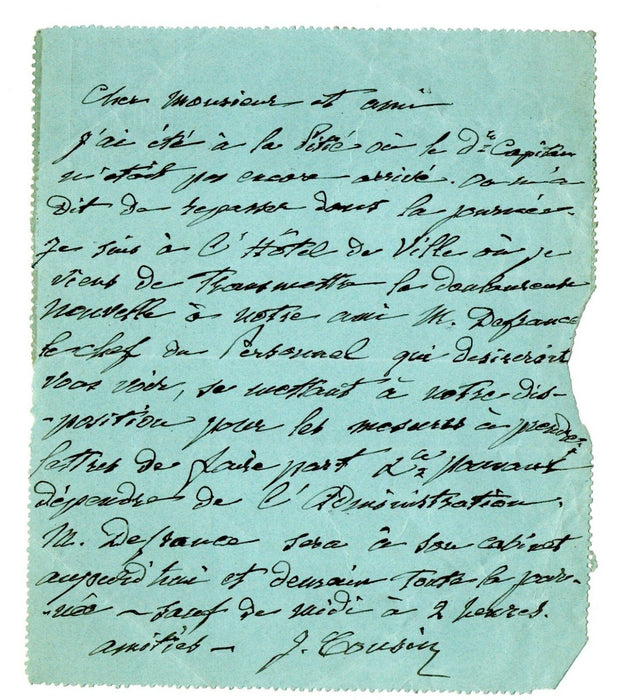 Cher Monsieur et ami
J'ai été à la Pitié où le Dr Capitan
n'était pas encore arrivé. On m'a
dit de repasser dans la journée.
Je suis à l'Hôtel de Ville où je
viens de transmettre la douloureuse
nouvelle à notre ami M. Defrance
le chef du Personnel qui desirerait
vous voir, se mettant à notre dis-
-position pour les mesures à prendre,
lettres de faire part &a pouvant
dépendre de l'Administration.
M. Defrance sera à son cabinet
aujourd'hui et demain toute la jour-
-née – sauf de midi à 2 heures.
amitiés – J. Cousin